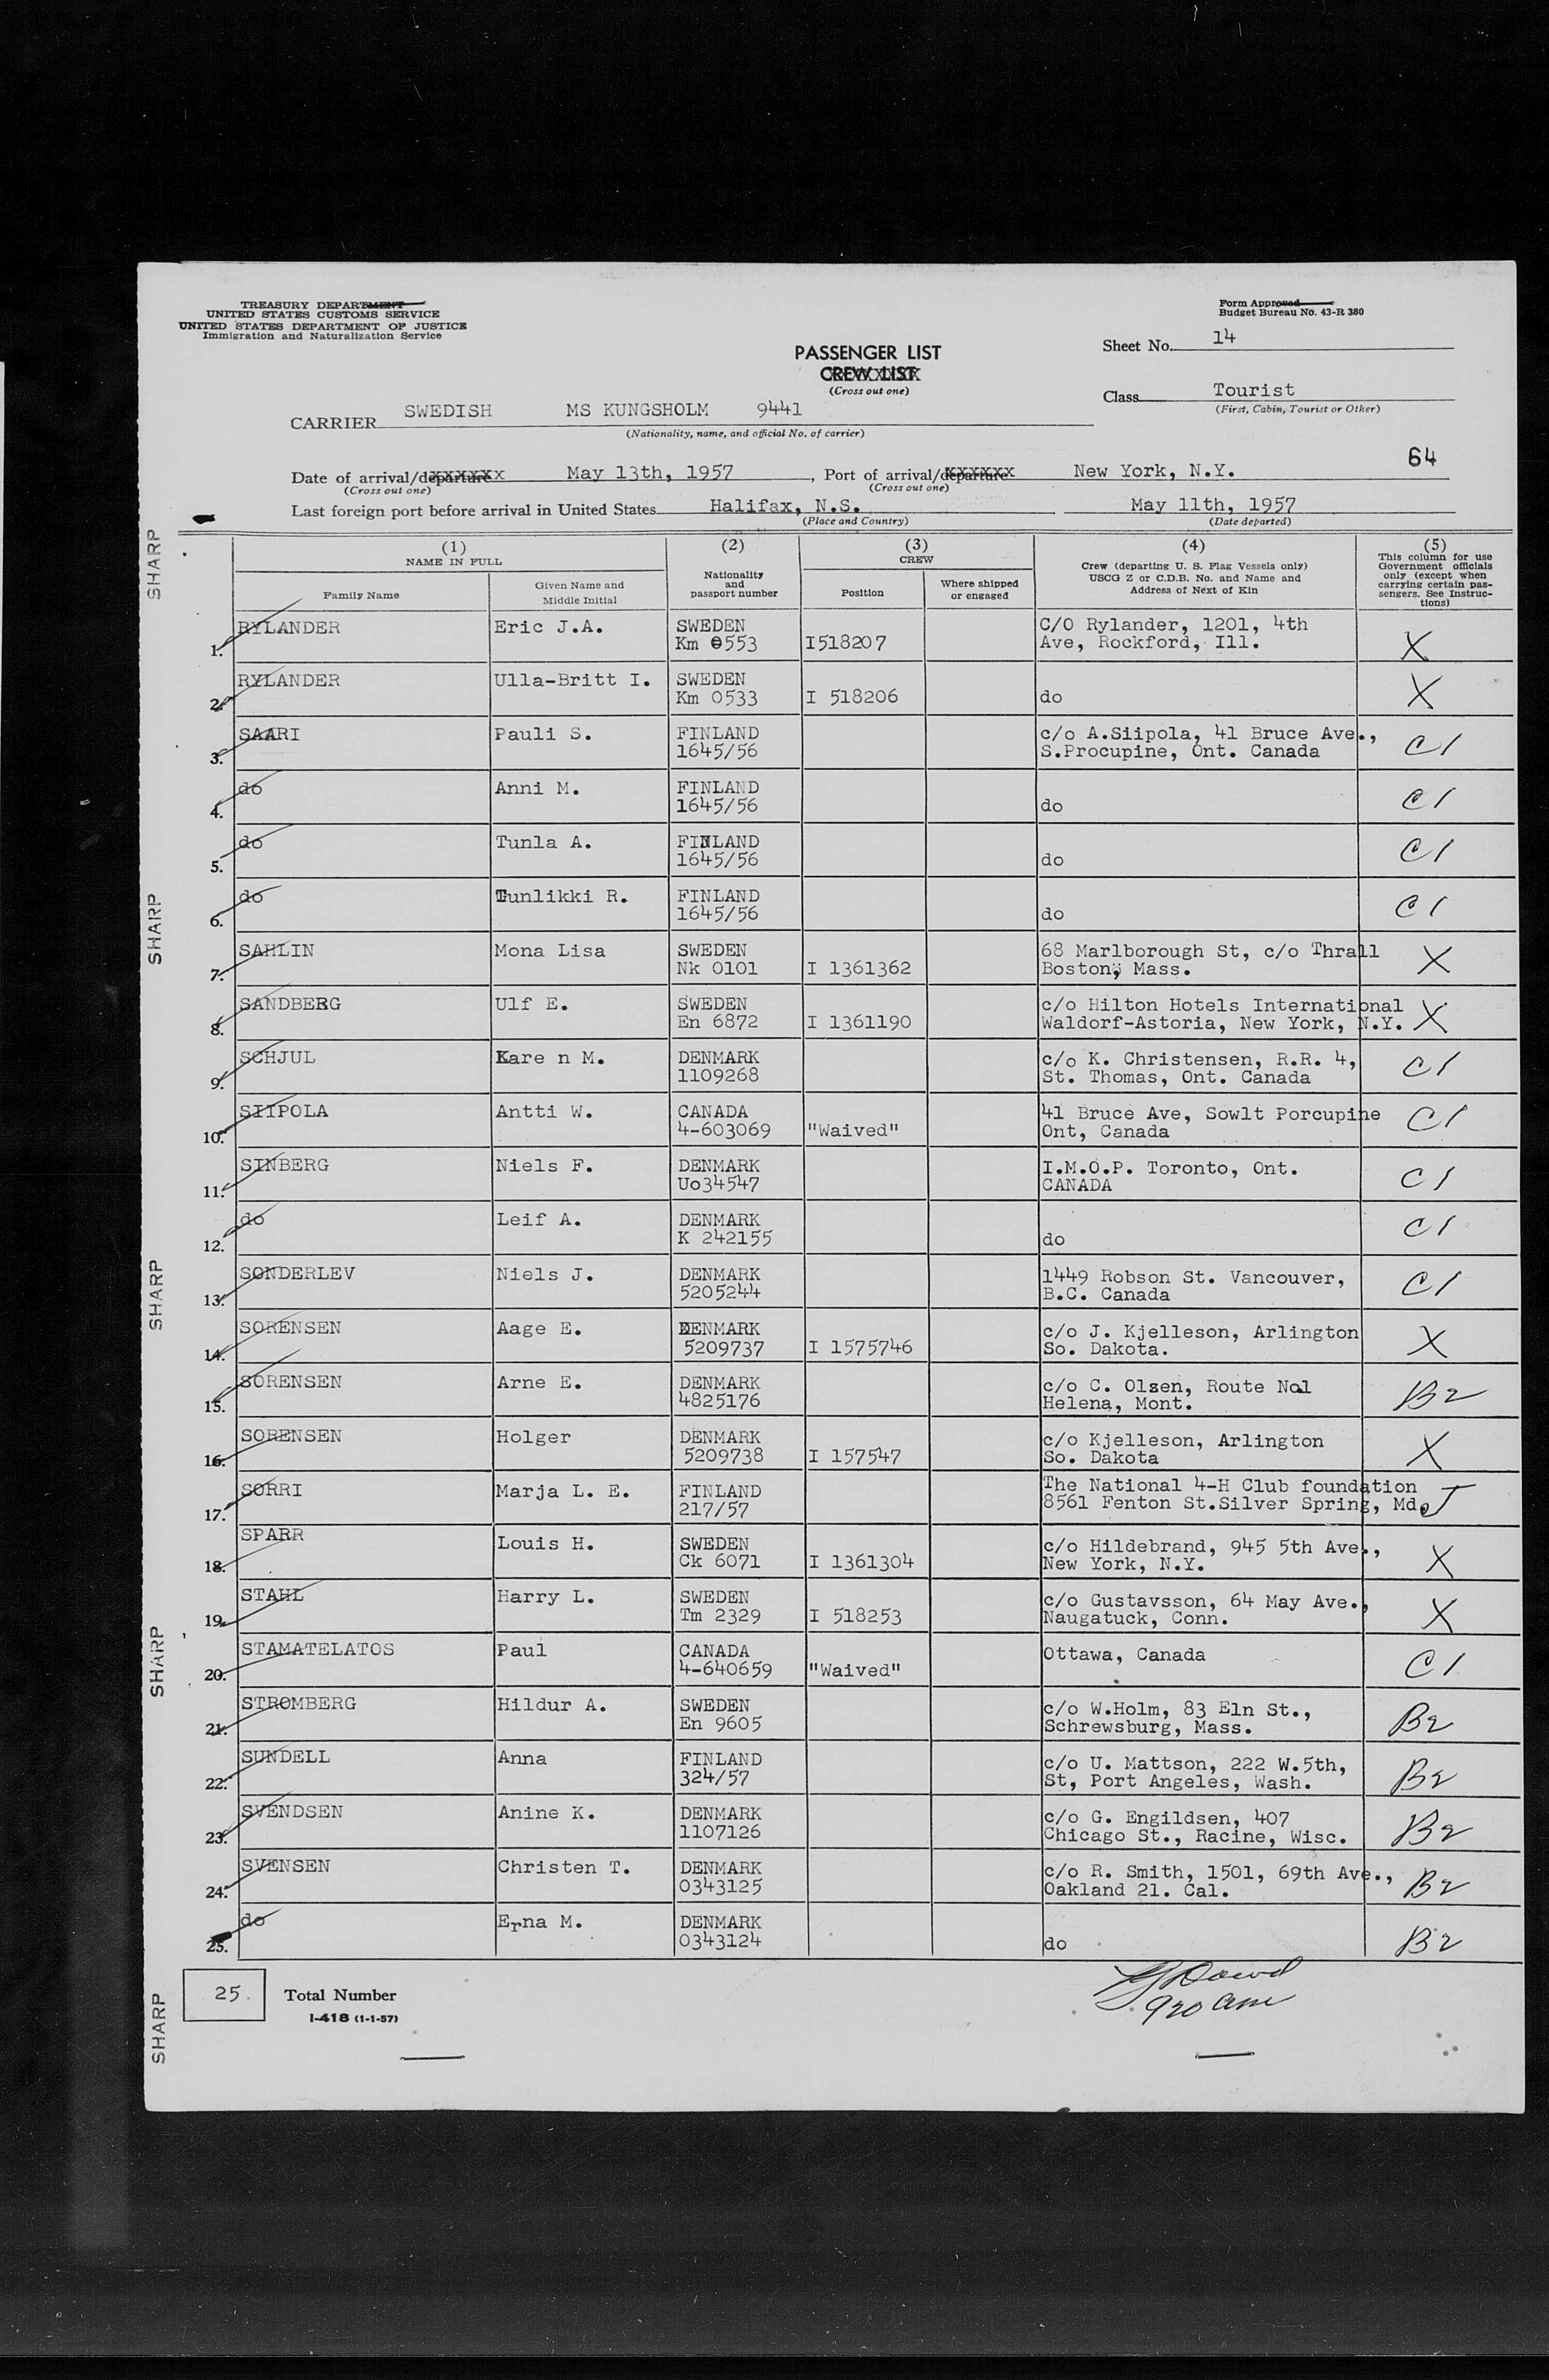 TREASURY DEPARTMENT
UNITED STATES CUSTOMS SERVICE
UNITED STATES DEPARTMENT OF JUSTICE
Immigration and Naturalization Service
Form Approved
Budget Bureau No. 43-R 380
Sheet No. 14
PASSENGER LIST
CREW LIST
(Cross out one)
Class Tourist
(First, Cabin, Tourist or Other)
CARRIER SWEDISH MS KUNGSHOLM 9441
(Nationality, name, and official No. of carrier)
64
Date of arrival/departure May 13th, 1957, Port of arrival/departure New York, N.Y.
(Cross out one) (Cross out one)
Last foreign port before arrival in United States Halifax, N.S. May 11th, 1957
(Place and Country) (Date departed)
(1) (2) (3) (4) (5)
NAME IN FULL
Family Name
Given Name and
Middle Initial
Nationality
and
passport number
CREW
Position
Where shipped
or engaged
Crew (departing U. S. Flag Vessels only)
USCG Z or C.D.B. No. and Name and
Address of Next of Kin
This column for use
Government officials
only (except when
carrying certain pas-
sengers. See Instruc-
tions)
RYLANDER Eric J.A. SWEDEN C/O Rylander, 1201, 4th
1. Km 0553 I518207 Ave, Rockford, Ill. X
RYLANDER Ulla-Britt I. SWEDEN
2. Km 0533 I 518206 do X
SAARI Pauli S. FINLAND c/o A.Siipola, 41 Bruce Ave.,
3. 1645/56 S.Procupine, Ont. Canada C1
do Anni M. FINLAND
4. 1645/56 do C1
do Tunla A. FINLAND
5. 1645/56 do C1
do Tunlikki R. FINLAND
6. 1645/56 do C1
SAHLIN Mona Lisa SWEDEN 68 Marlborough St, c/o Thrall
7. Nk 0101 I 1361362 Boston, Mass. X
SANDBERG Ulf E. SWEDEN c/o Hilton Hotels International
8. En 6872 I 1361190 Waldorf-Astoria, New York, N.Y. X
SCHJUL Kare n M. DENMARK c/o K. Christensen, R.R. 4,
9. 1109268 St. Thomas, Ont. Canada C1
SIIPOLA Antti W. CANADA 41 Bruce Ave, Sowlt Porcupine
10. 4-603069 "Waived" Ont, Canada C1
SINBERG Niels F. DENMARK I.M.O.P. Toronto, Ont.
11. Uo34547 CANADA C1
do Leif A. DENMARK
12. K 242155 do C1
SONDERLEV Niels J. DENMARK 1449 Robson St. Vancouver,
13. 5205244 B.C. Canada C1
SORENSEN Aage E. DENMARK c/o J. Kjelleson, Arlington
14. 5209737 I 1575746 So. Dakota. X
SORENSEN Arne E. DENMARK c/o C. Olsen, Route No1
15. 4825176 Helena, Mont. B2
SORENSEN Holger DENMARK c/o Kjelleson, Arlington
16. 5209738 I 157547 So. Dakota X
SORRI Marja L. E. FINLAND The National 4-H Club foundation
17. 217/57 8561 Fenton St.Silver Spring, Md. J
SPARR Louis H. SWEDEN c/o Hildebrand, 945 5th Ave.,
18. Ck 6071 I 1361304 New York, N.Y. X
STAHL Harry L. SWEDEN c/o Gustavsson, 64 May Ave.,
19. Tm 2329 I 518253 Naugatuck, Conn. X
STAMATELATOS Paul CANADA Ottawa, Canada
20. 4-640659 "Waived" C1
STROMBERG Hildur A. SWEDEN c/o W.Holm, 83 Eln St.,
21. En 9605 Schrewsburg, Mass. B2
SUNDELL Anna FINLAND c/o U. Mattson, 222 W.5th,
22. 324/57 St, Port Angeles, Wash. B2
SVENDSEN Anine K. DENMARK c/o G. Engildsen, 407
23. 1107126 Chicago St., Racine, Wisc. B2
SVENSEN Christen T. DENMARK c/o R. Smith, 1501, 69th Ave.,
24. 0343125 Oakland 21. Cal. B2
do Erna M. DENMARK
25. 0343124 do B2
25 Total Number
I-418 (1-1-57)
Dowd
920 am
SHARP
SHARP
SHARP
SHARP
SHARP